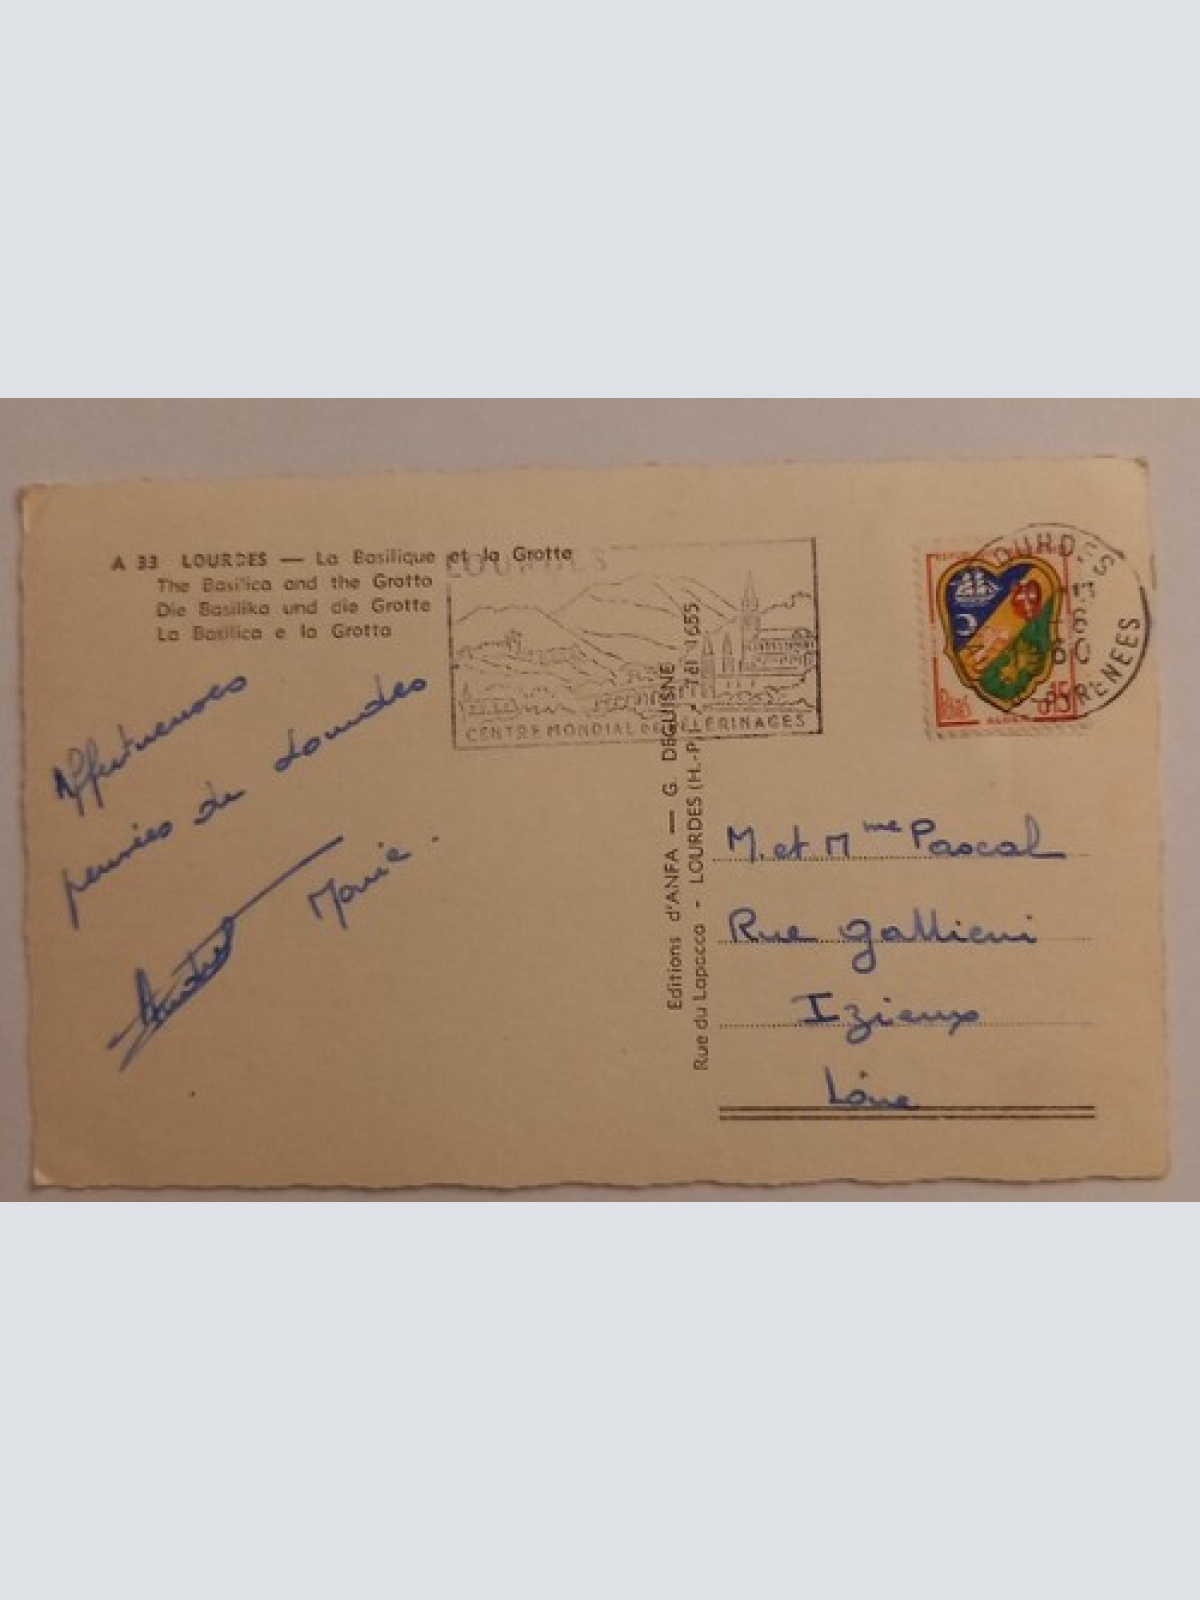 A 33 LOURDES — La Basilique et la Grotte
The Basilica and the Grotto
Die Basilika und die Grotte
La Basilica e la Grotta
LOURDES
CENTRE MONDIAL DE PÈLERINAGES
LOURDES
PYRENEES
15
ALGER
Affectueuses
pensées de Lourdes
Marie.
Editions d'ANFA — G. DEGUISNE
Rue du Lapacca - LOURDES (H.-P.) - Tél 1655
M. et Mme Pascal
Rue Gallieni
Izieux
Loire